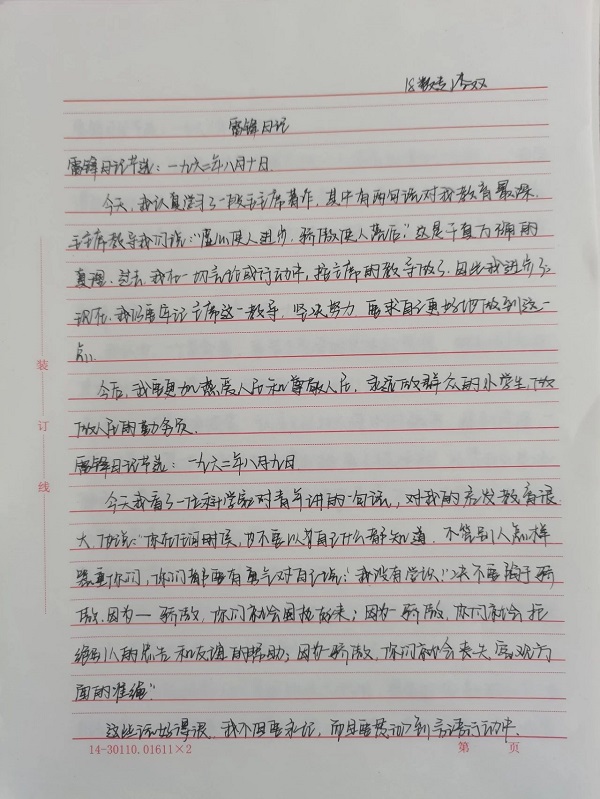 18数专李双
雷锋日记
雷锋日记节选：一九六二年八月十日.
今天，我认真学习了一段毛主席著作，其中有两句话对我教育最深.
毛主席教导我们说：“虚心使人进步，骄傲使人落后.”这是千真万确的
真理.过去，我在一切言论或行动中，按主席的教导做了.因此我进步了.
现在，我仍要牢记主席这一教导，坚决努力，要求自己更好地做到这一
点.
今后，我要更加热爱人民和尊敬人民，永远做群众的小学生，做
做人民的勤务员.
雷锋日记节选：一九六二年八月九日
今天我看了一位科学家对青年讲的一句话，对我的启发教育很
大.他说：“你在任何时候，也不要以为自己什么都知道，不管别人怎样
器重你们，你们都要有勇气对自己说：‘我没有学识！’决不要陷于骄
傲.因为一骄傲，你们就会固执起来；因为一骄傲，你们就会拒
绝别人的忠告和友谊的帮助；因为一骄傲，你们就会丧失客观方
面的准绳”
这些话好得很，我不但要永记，而且要贯彻到言语行动中.
装
订
线
14-30110.01611×2
第 页